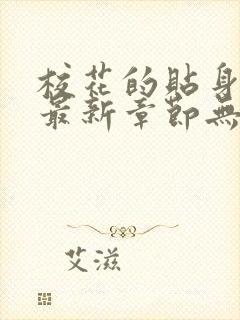 校花的貼身
最新章節無
艾滋